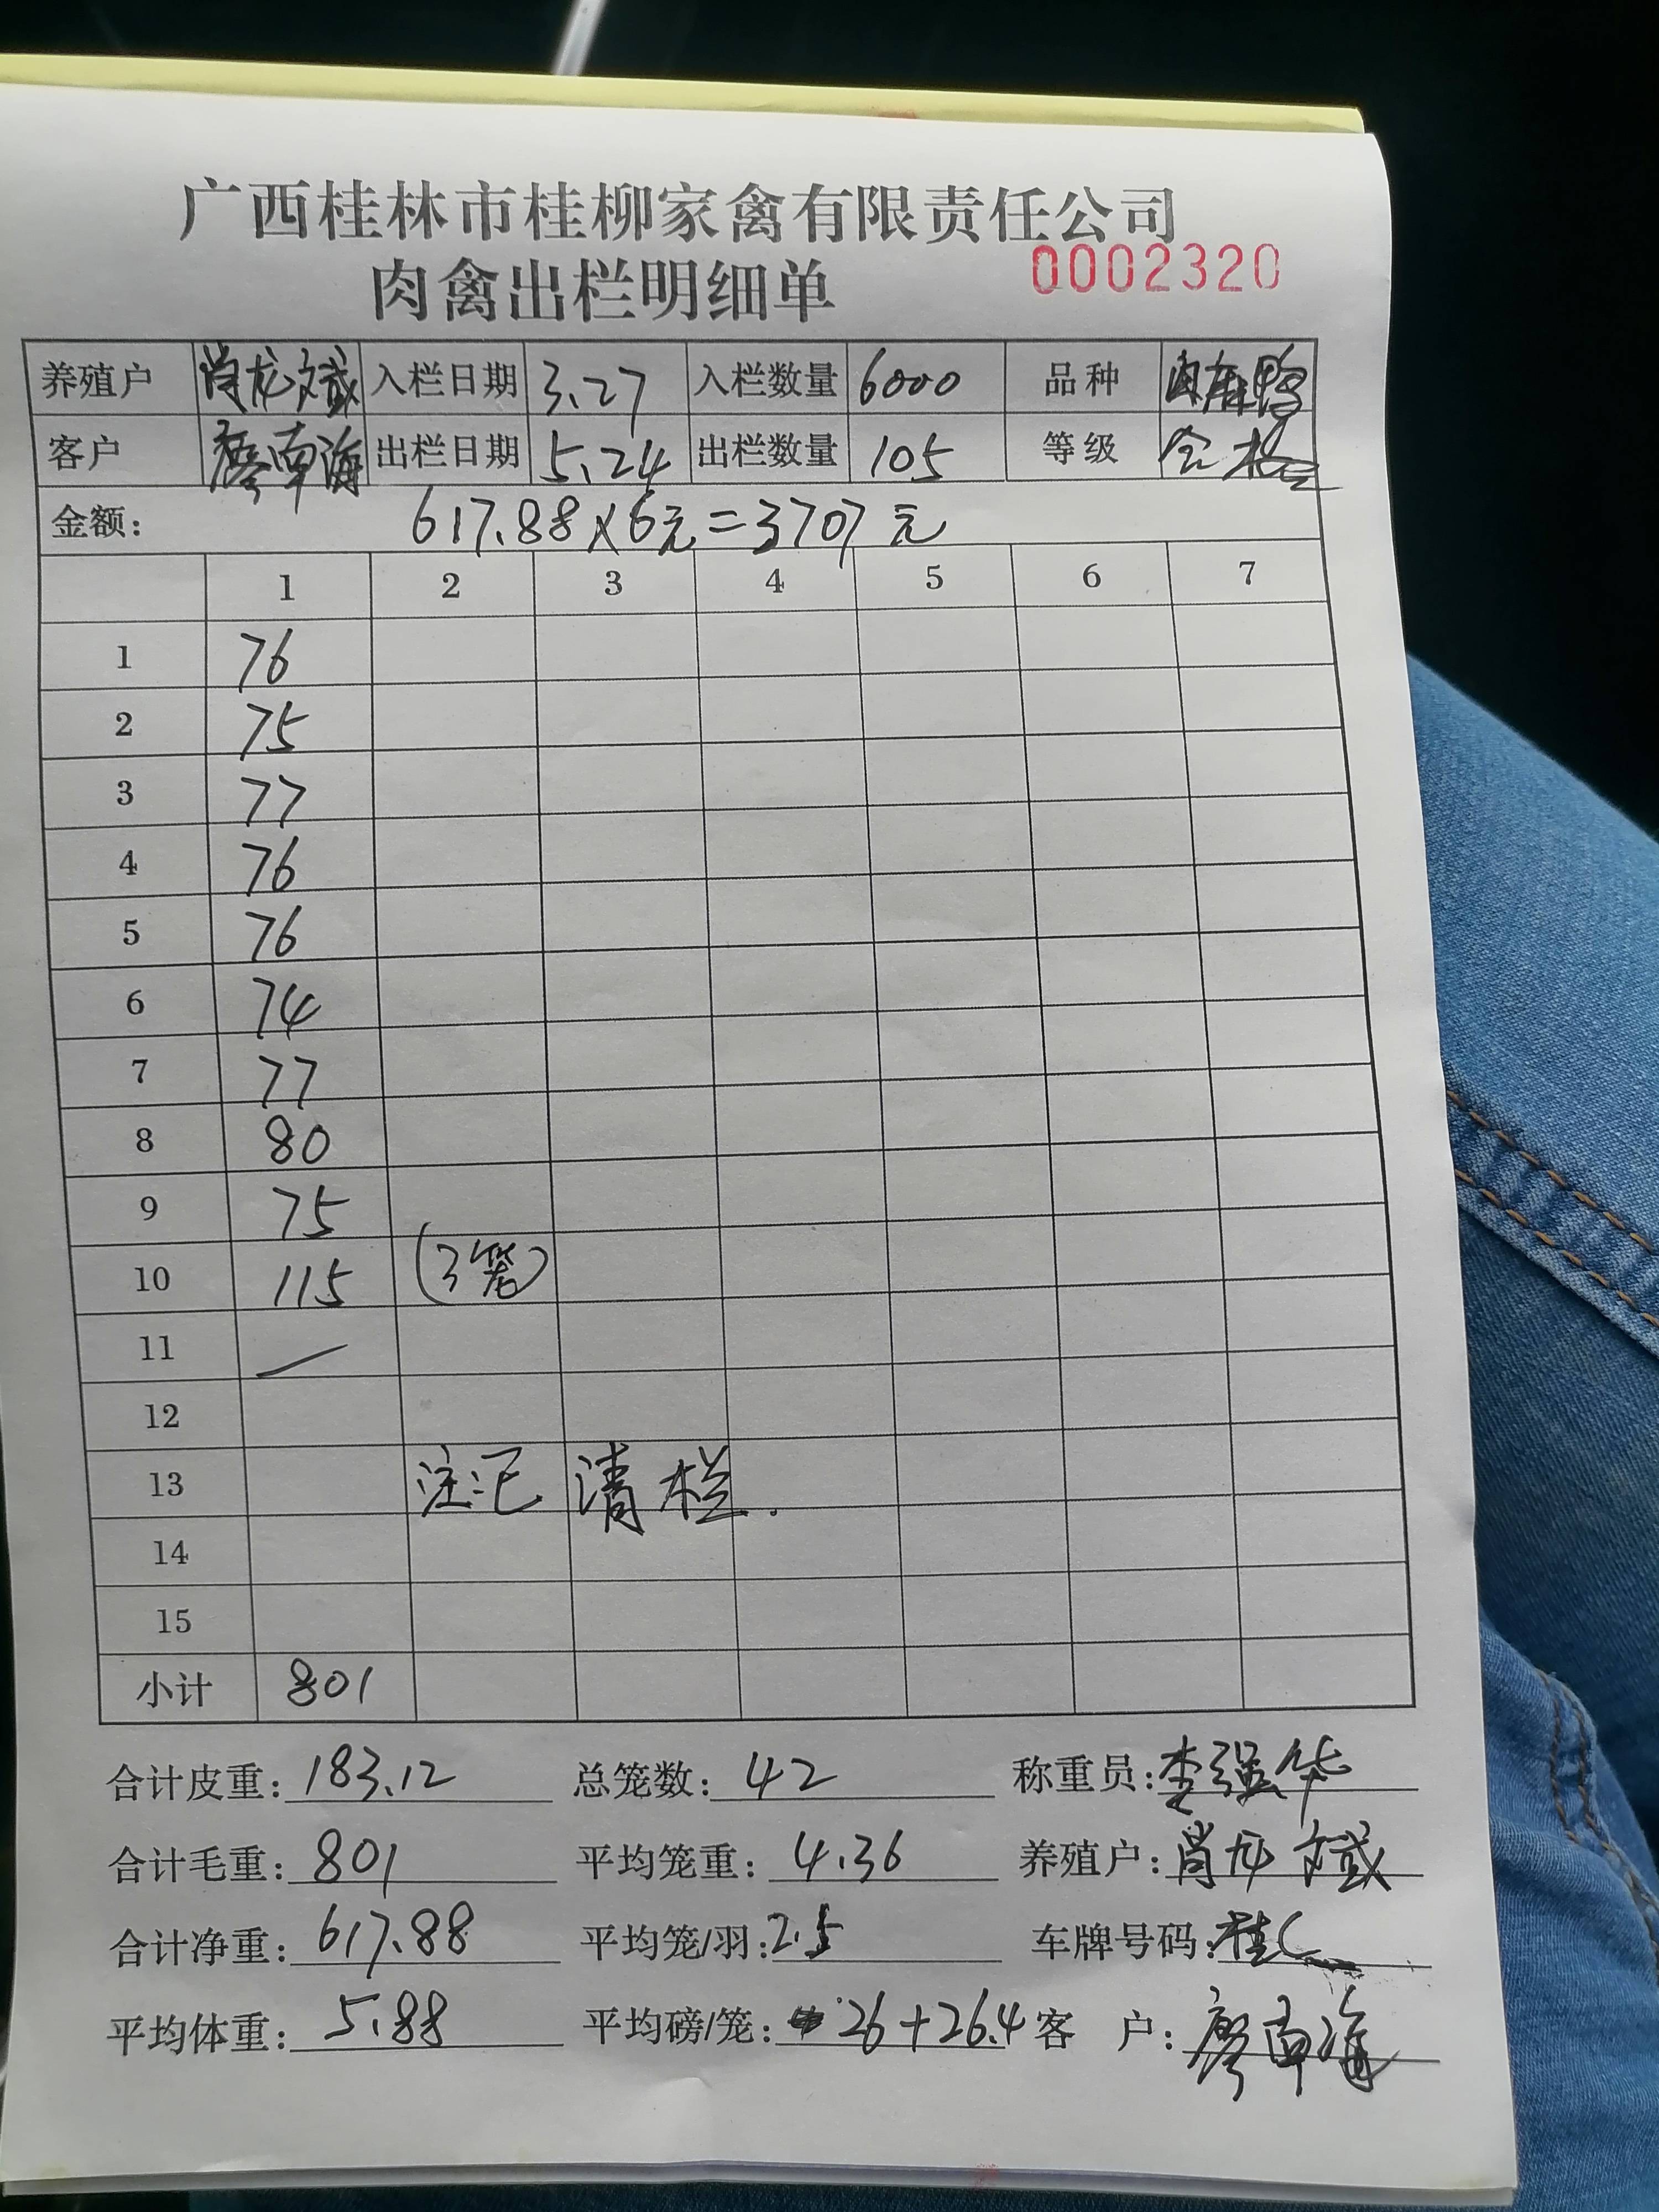 广西桂林市桂柳家禽有限责任公司
肉禽出栏明细单 0002320
养殖户 肖龙文斌 入栏日期 3.27 入栏数量 6000 品种 肉麻鸭
客户 廖南海 出栏日期 5.24 出栏数量 105 等级 合格
金额: 617.88×6元=3707元
1 2 3 4 5 6 7
1 76
2 75
3 77
4 76
5 76
6 74
7 77
8 80
9 75
10 115 (3笼)
11
12
13 注记 清栏.
14
15
小计 801
合计皮重: 183.12 总笼数: 42 称重员: 李强华
合计毛重: 801 平均笼重: 4.36 养殖户: 肖龙文斌
合计净重: 617.88 平均笼/羽: 2.5 车牌号码: 桂C
平均体重: 5.88 平均磅/笼: 26+26.4 客 户: 廖南海